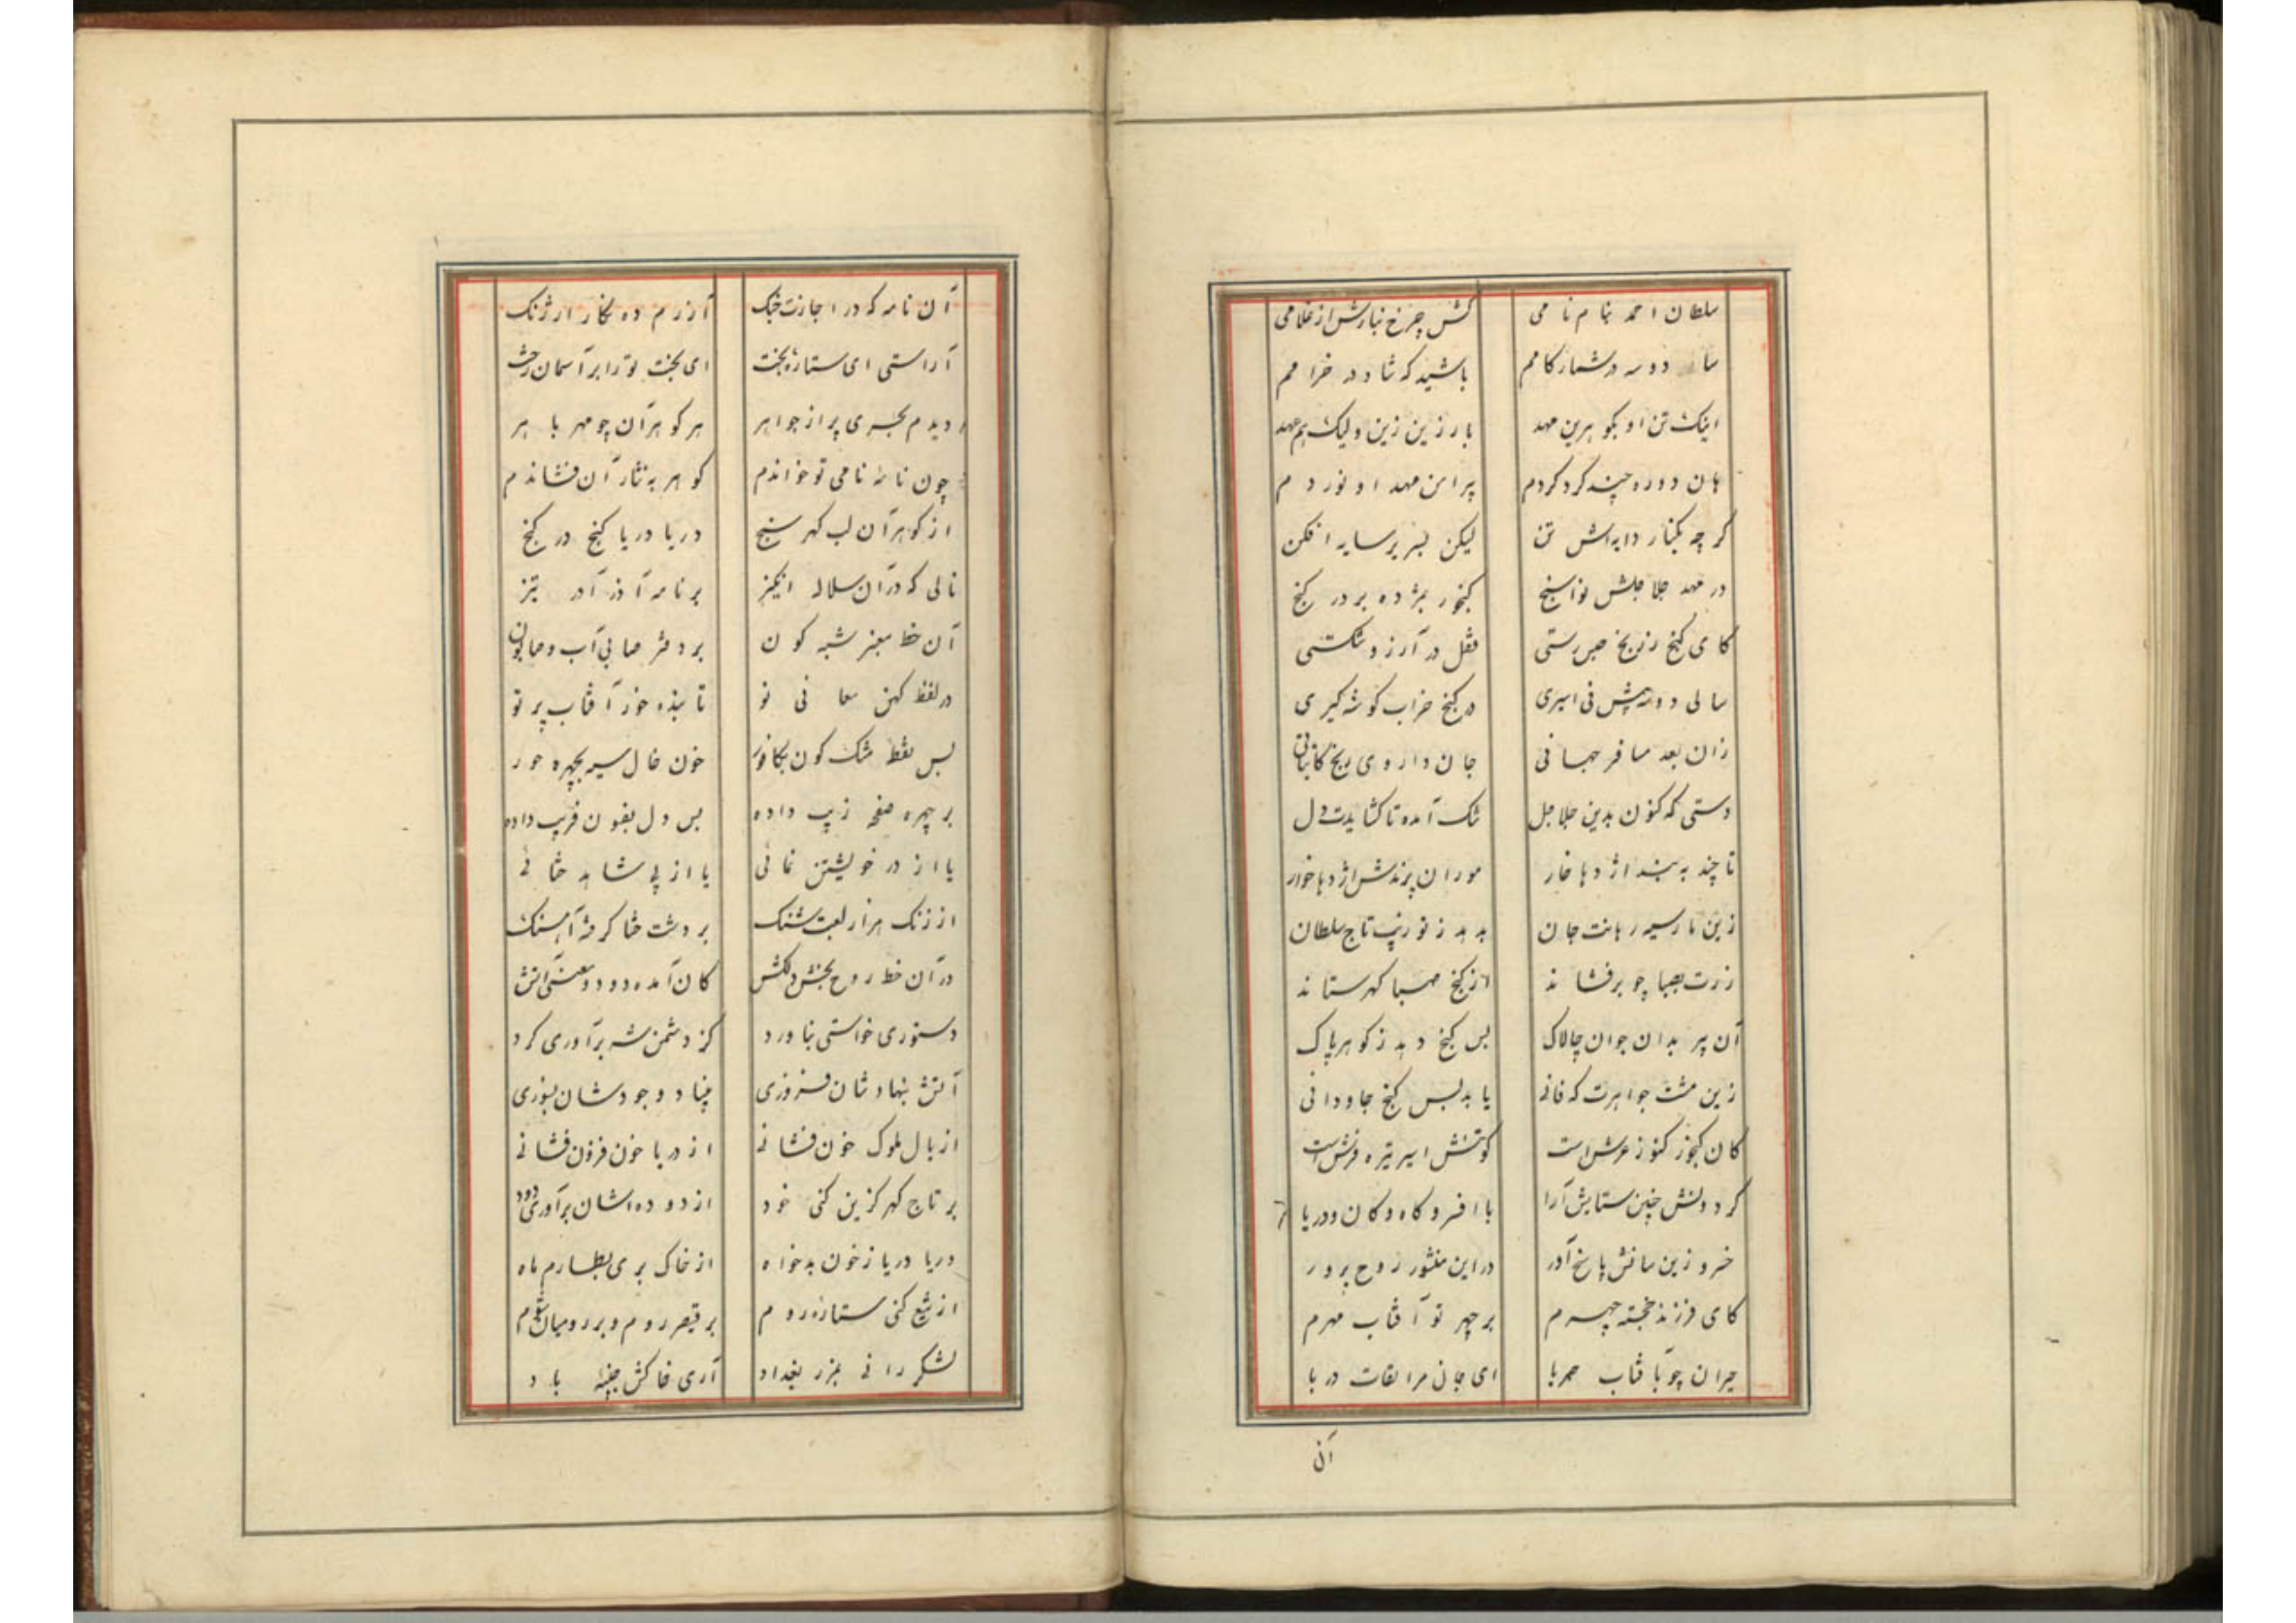 سلطان احمد بنام نامی کش چرخ نیارش از غلامی
سا دو سه در شمار کامم باشید که شاد در خرامم
اینک تن او بگوهرین مهد بار زین زین ولیک هم عهد
هان دوره چند کرد کردم پیرامن مهد او نوردم
کرچه بکنار دایه اش تن لیکن بسر بر سایه افکن
در مهد جلاجلش نواسنج کنجور بمژده بر در کنج
کای کنج زرنج حبس رستی قفل در آرزو شکستی
سالی دو سه پیش فی اسیری در کنج خراب کوشه کیری
زان بعد مسافر جهانی جان داروی رنج
دستی که کنون بدین جلاجل نک آمده تا کشایدت دل
تا چند به بند اژدها خار موران پرندش اژدها خوار
زین مار سیه رهانت جان بدهد ز تو زیب تاج سلطان
زرت بصبا چو برفشاند از کنج صبا کهر ستاند
آن پیر بدان جوان چالاک بس کنج دهد ز کوهر پاک
زین مشت جواهرت که فانی یابد بس کنج جاودانی
کان کنجور کنوز عرش است کو تنش اسیر تیره فرش است
کرد دلش چنین ستایش آرا با افسر و کاه و کان و دریا
خسرو زین سانش پاسخ آور در این منثور روح پرور
کای فرزند خجسته چهرم بر چهر تو آفتاب مهرم
حیران چو بآفتاب حربا ای جان مرا لقات دربا
آن
آن نامه که در اجازت جنک آزرم ده نکار ارژنک
آراستی ای ستاره بخت ای بخت تو را بر آسمان رخت
دیدم بحری پر از جواهر هر کوهر آن چو مهر باهر
چون نامه نامی تو خواندم کوهر به نثار آن فشاندم
از کوهر آن لب کهر سنج دریا دریا کنج در کنج
نالی که در آن سلاله انکیز بر نامه آذر آدر تیز
آن خط معنبر شبه کون بر دفتر مانی آب و
در لفظ کهن معانی نو تابنده خور آفتاب پرتو
بس نقط مشک کون بکافور چون خال سیه بچهره حور
بر چهره صفحه زیب داده بس دل بفسون فریب داده
یا از در خویشتن نمائی یا از پی شاهد ختائی
از زنک هزار لعبت شنک بر دشت ختا کرفته آهنک
در آن خط روح بخش دلکش کان آمده دود و معنی آتش
دستوری خواستی بناورد کز دشمن شه برآوری کرد
آتش بنهادشان فروزی بنیاد وجودشان بسوزی
از یال ملوک خون فشانی از دریا خون فزون فشانی
بر تاج کهر کزین کنی خود از دوده اشان برآوری دود
دریا دریا ز خون بدخواه از خاک بری بطارم ماه
از تیغ کنی ستاره روم بر قیصر روم و بر رومیان شوم
لشکر رانی بمرز بغداد آری خاکش جنیبه باد